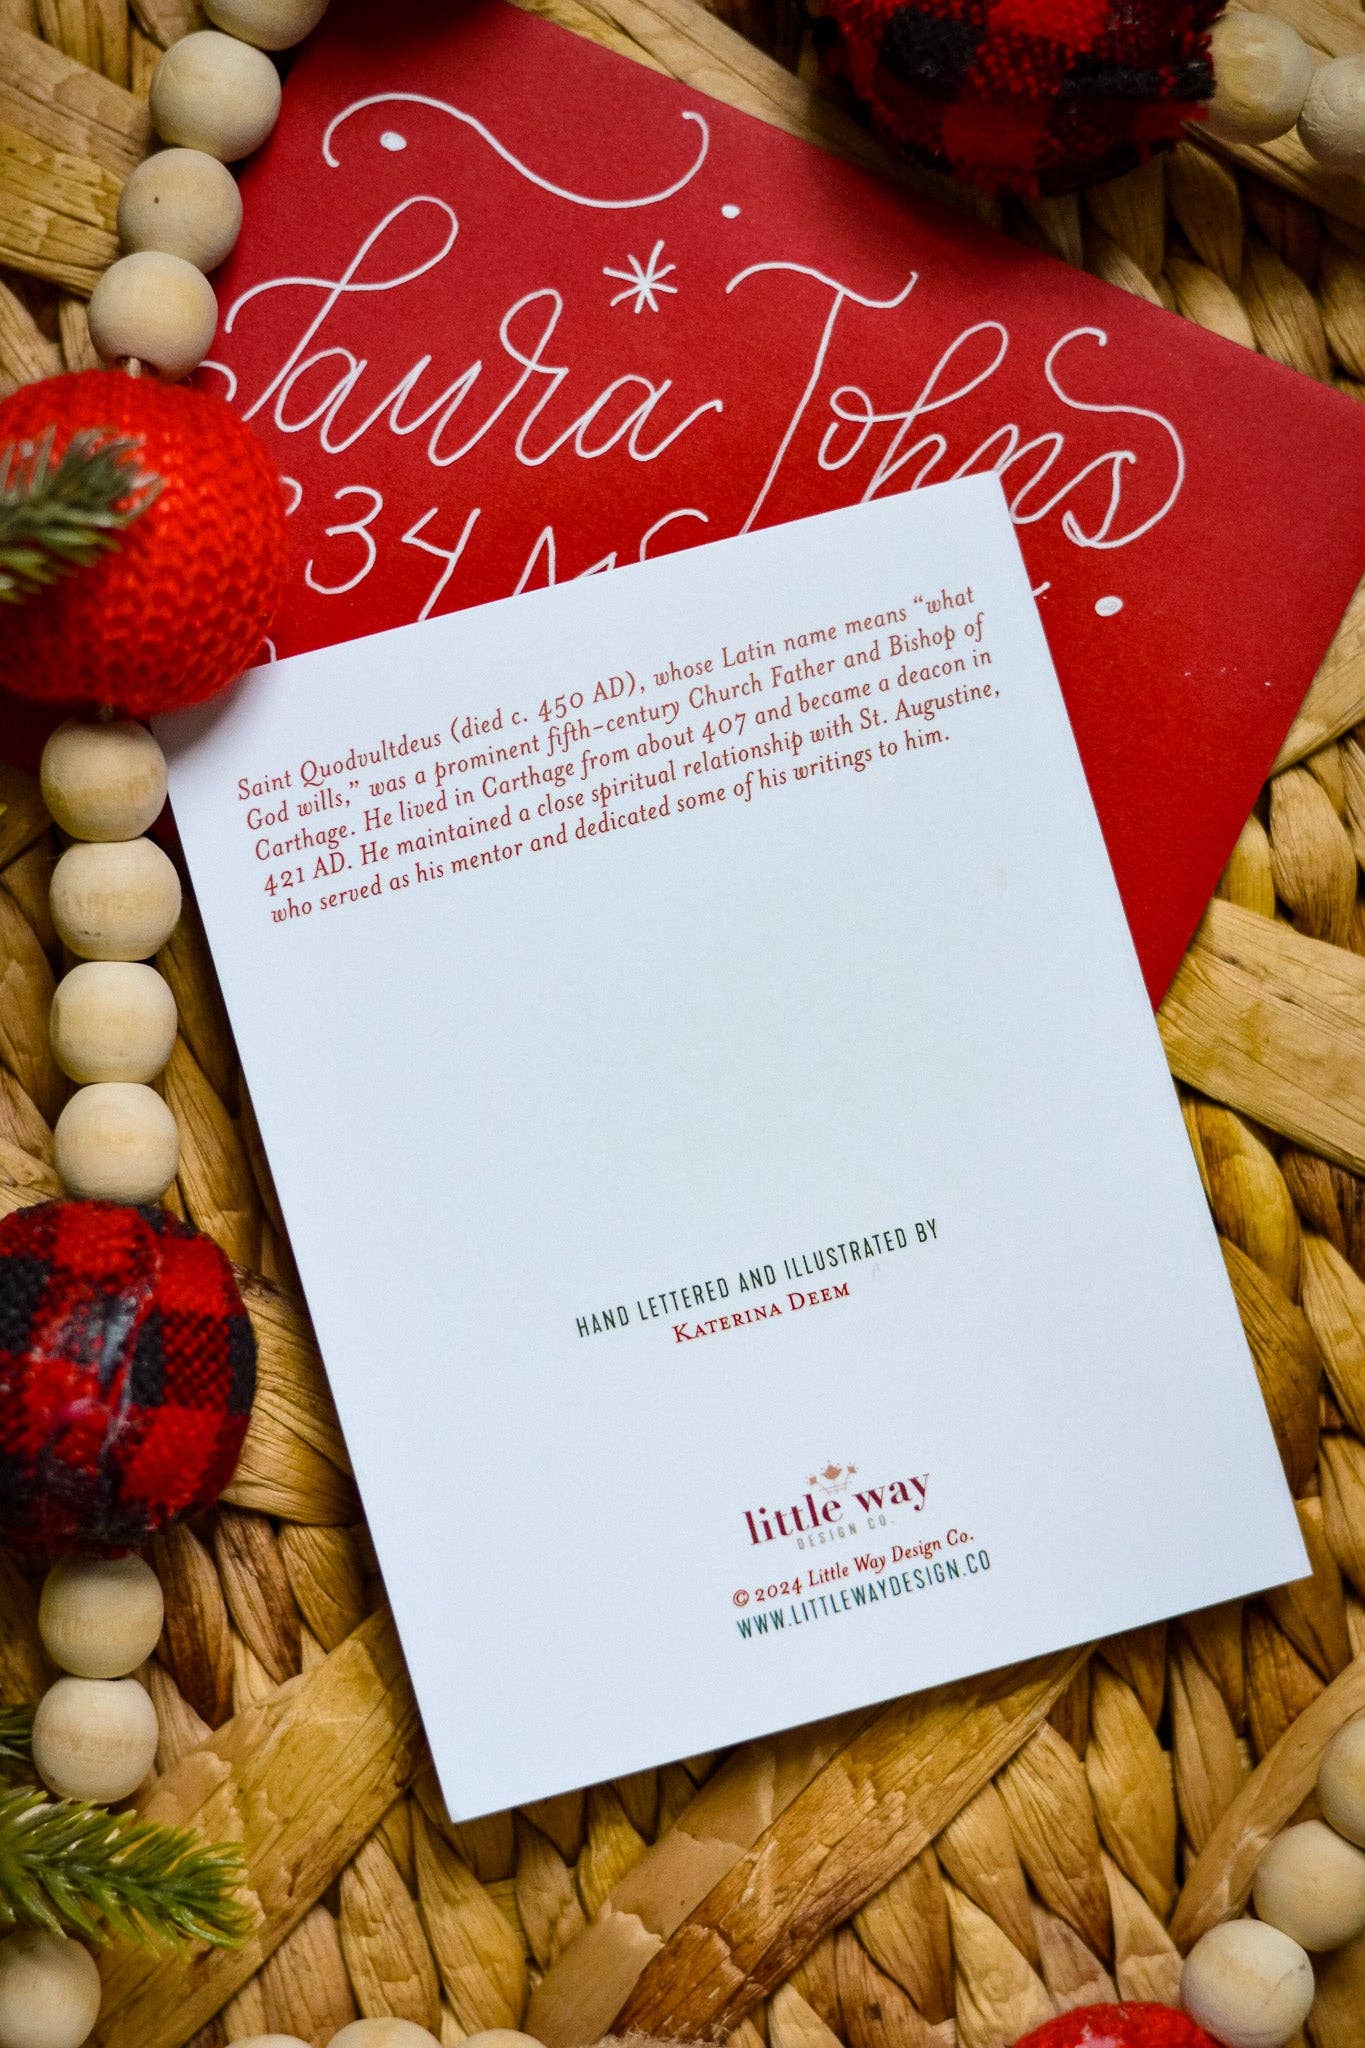 Laura Johns
Saint Quodvultdeus (died c. 450 AD), whose Latin name means “what
God wills,” was a prominent fifth-century Church Father and Bishop of
Carthage. He lived in Carthage from about 407 and became a deacon in
421 AD. He maintained a close spiritual relationship with St. Augustine,
who served as his mentor and dedicated some of his writings to him.
HAND LETTERED AND ILLUSTRATED BY
KATERINA DEEM
little way
DESIGN CO.
© 2024 Little Way Design Co.
WWW.LITTLEWAYDESIGN.CO